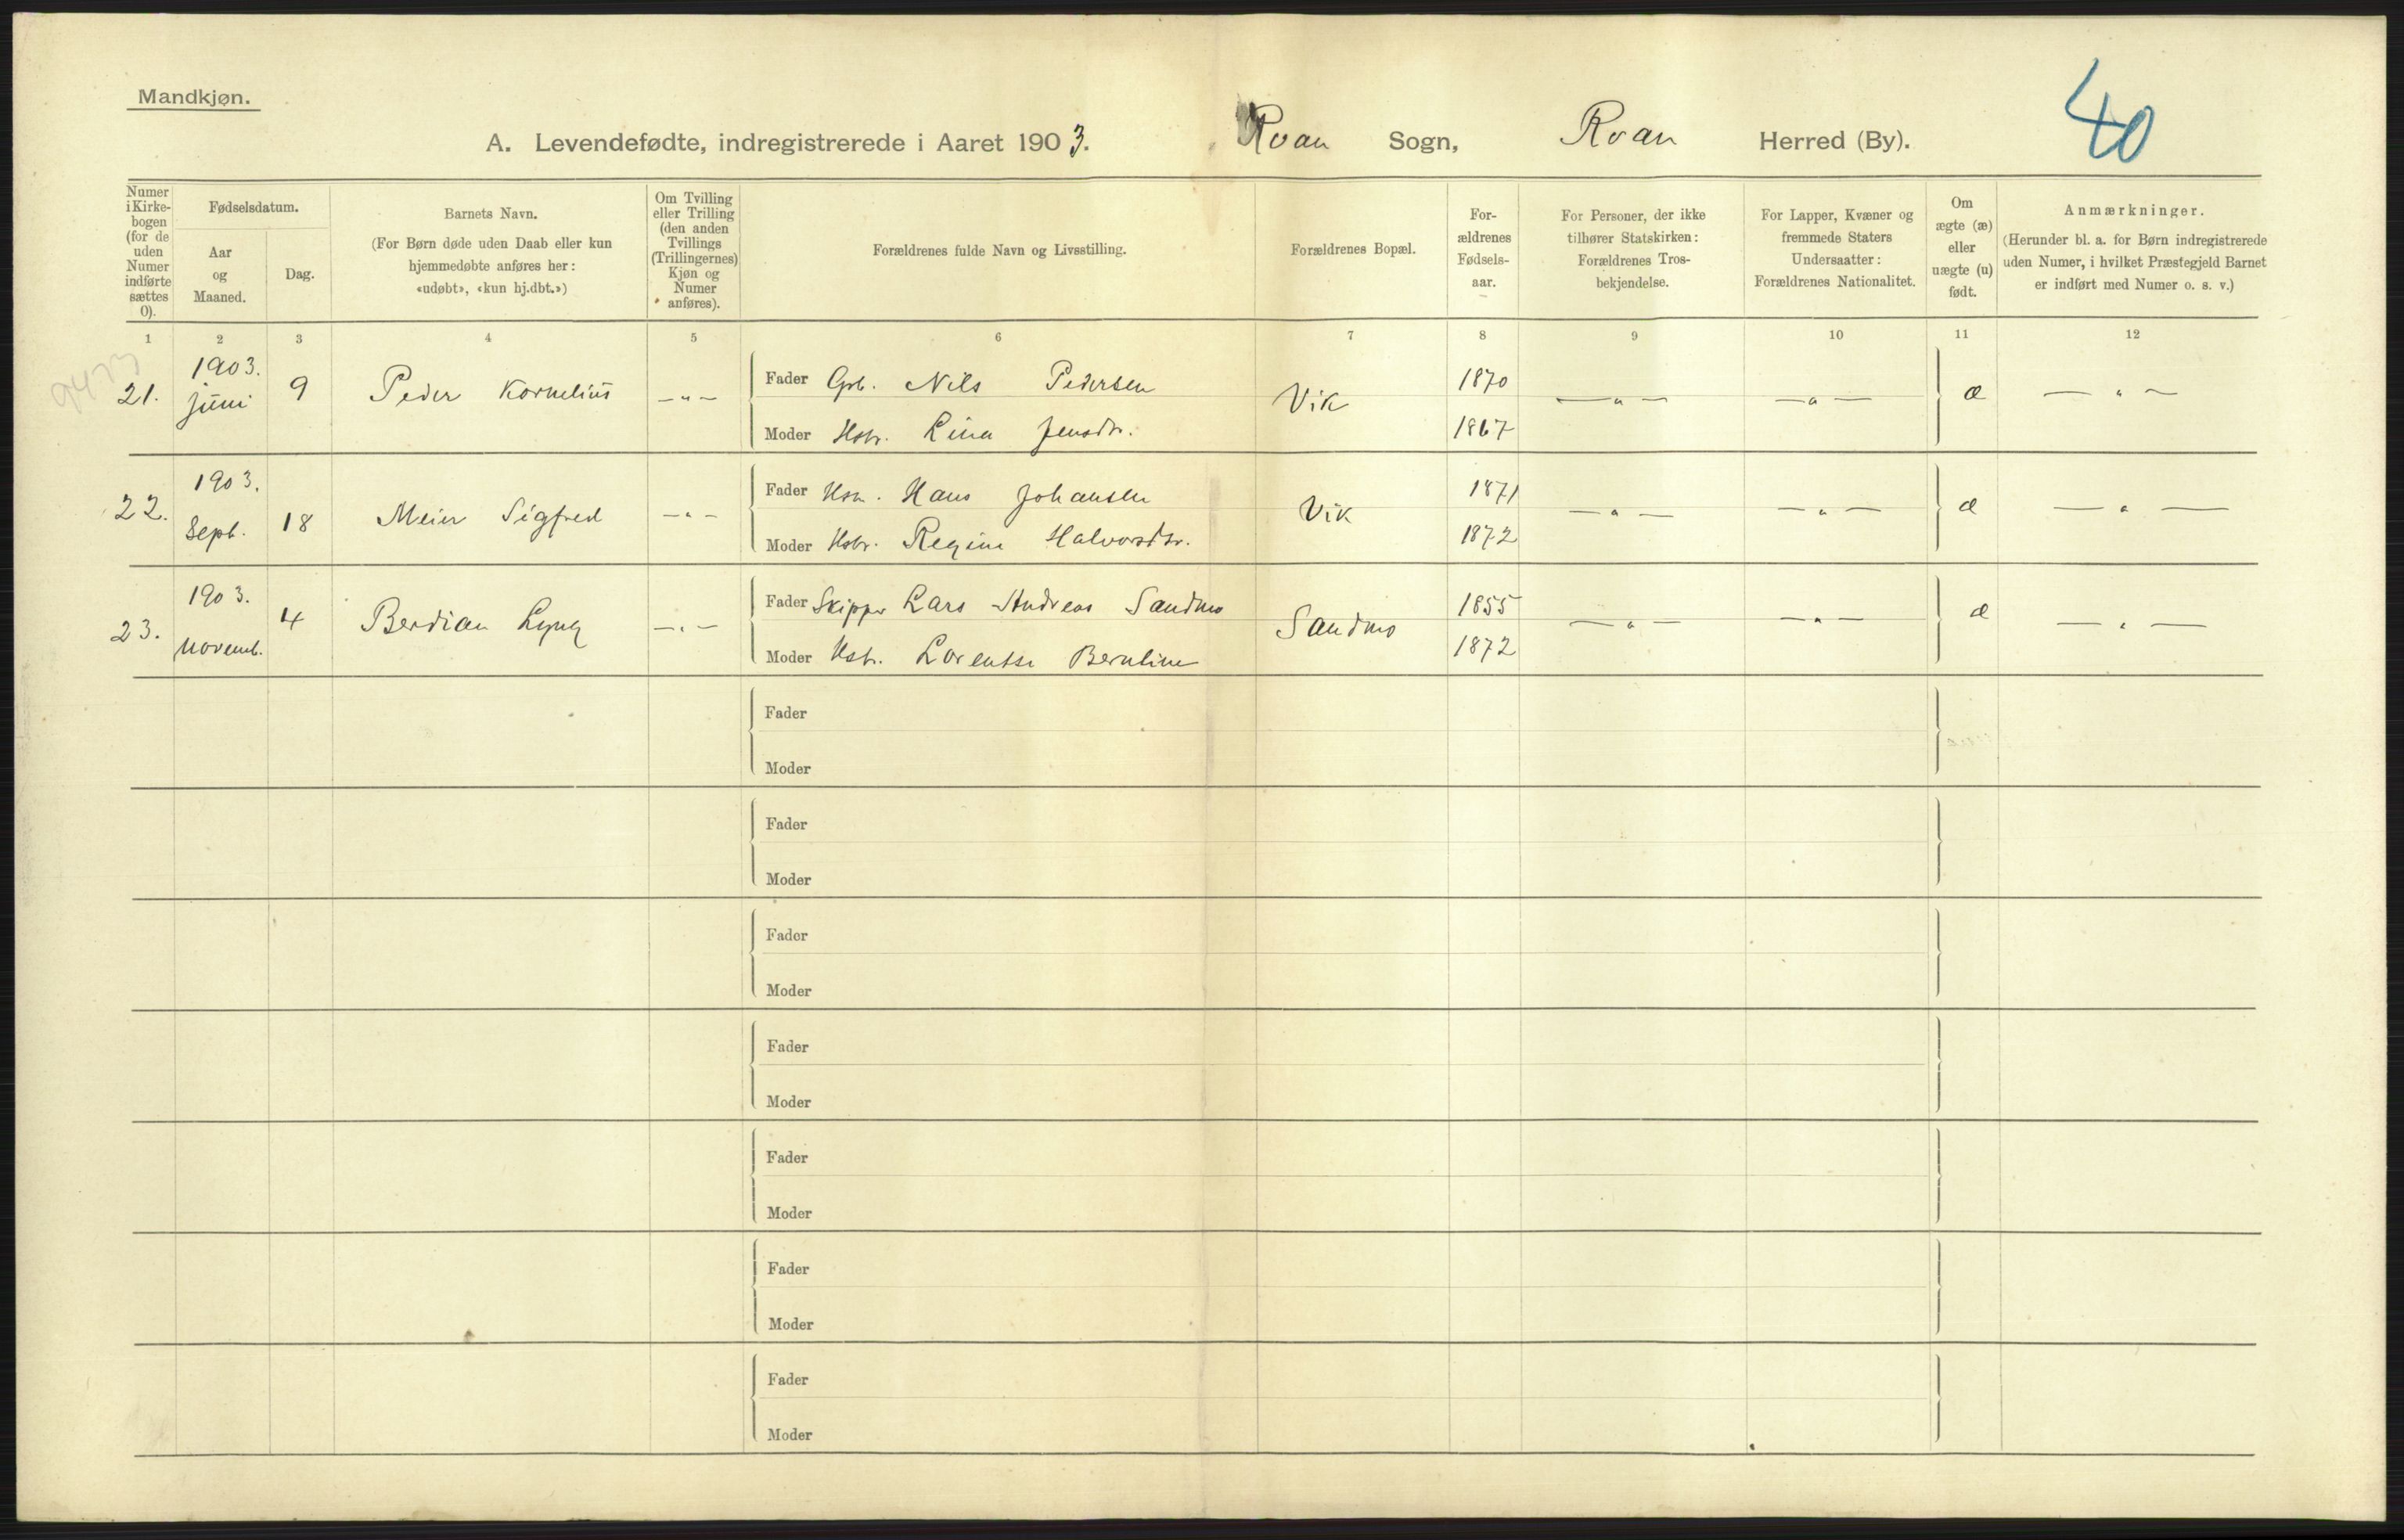 Mandkjøn.
A. Levendefødte, indregistrerede i Aaret 1903. Roan Sogn, Roan Herred (By). 40
Numer i Kirke-bogen (for de uden Numer indførte sættes 0).
Fødselsdatum.
Aar og Maaned.
Dag.
Barnets Navn.
(For Børn døde uden Daab eller kun
hjemmedøbte anføres her:
«udøbt», «kun hj.dbt.»)
Om Tvilling
eller Trilling
(den anden
Tvillings
(Trillingernes)
Kjøn og
Numer
anføres).
Forældrenes fulde Navn og Livsstilling.
Forældrenes Bopæl.
For-
ældrenes
Fødsels-
aar.
For Personer, der ikke
tilhører Statskirken:
Forældrenes Tros-
bekjendelse.
For Lapper, Kvæner og
fremmede Staters
Undersaatter:
Forældrenes Nationalitet.
Om
ægte (æ)
eller
uægte (u)
født.
Anmærkninger.
(Herunder bl. a. for Børn indregistrerede
uden Numer, i hvilket Præstegjeld Barnet
er indført med Numer o. s. v.)
1 2 3 4 5 6 7 8 9 10 11 12
21. 1903. juni 9 Peder Kornelius — " — Fader Gbr. Nils Pedersen Vik 1870 — " — — " — æ — " —
Moder Hstr. Lina Jensdtr. 1867
22. 1903. Septb. 18 Meier Sigfred — " — Fader Hsm. Hans Johansen Vik 1871 — " — — " — æ — " —
Moder Hstr. Regine Halvorsdtr. 1872
23. 1903. novemb. 4 Berdian Lyng — " — Fader Skipper Lars Andreas Sandmo Sandmo 1855 — " — — " — æ — " —
Moder Hstr. Lorentse Bernline 1872
Fader
Moder
Fader
Moder
Fader
Moder
Fader
Moder
Fader
Moder
Fader
Moder
Fader
Moder